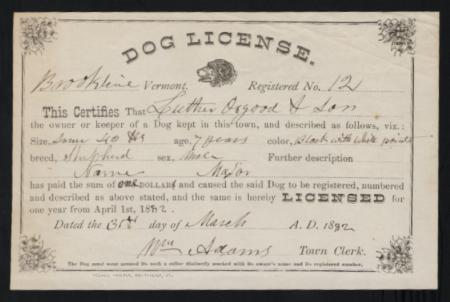 DOG LICENSE.
Brookline Vermont. Registered No. 12
This Certifies That Luther Osgood & Son
the owner or keeper of a Dog kept in this town, and described as follows, viz.:
Size, Some 40 lbs age, 7 years color, Black with white points
breed, Shepherd sex, Male Further description
Name Major
has paid the sum of one DOLLAR and caused the said Dog to be registered, numbered
and described as above stated, and the same is hereby LICENSED for
one year from April 1st, 1882.
Dated the 31st day of March A. D. 1882
Wm Adams Town Clerk.
The Dog must wear around its neck a collar distinctly marked with its owner's name and its registered number.